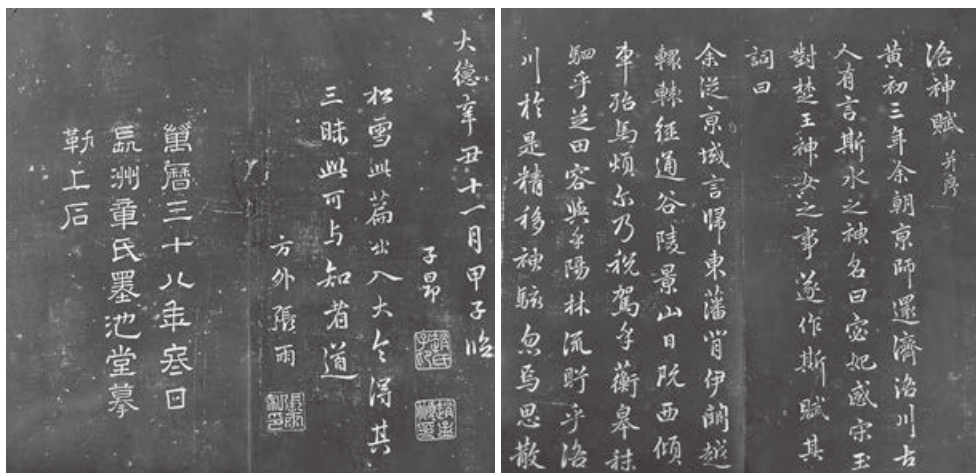 洛神賦 并序
黄初三年余朝京師還濟洛川古
人有言斯水之神名曰宓妃感宋玉
對楚王神女之事遂作斯賦其
詞曰
余從京域言歸東藩背伊闕越
轘轅經通谷陵景山日既西傾
車殆馬煩尔乃税駕乎蘅皋秣
駟乎芝田容與乎陽林流眄乎洛
川於是精移神駭忽焉思散
大德辛丑十一月甲子臨
子昂
趙氏子昂
松雪此篇出入大令得其
三昧此可与知者道
方外張雨
萬曆三十八年日
長洲章氏墨池堂摹
勒上石